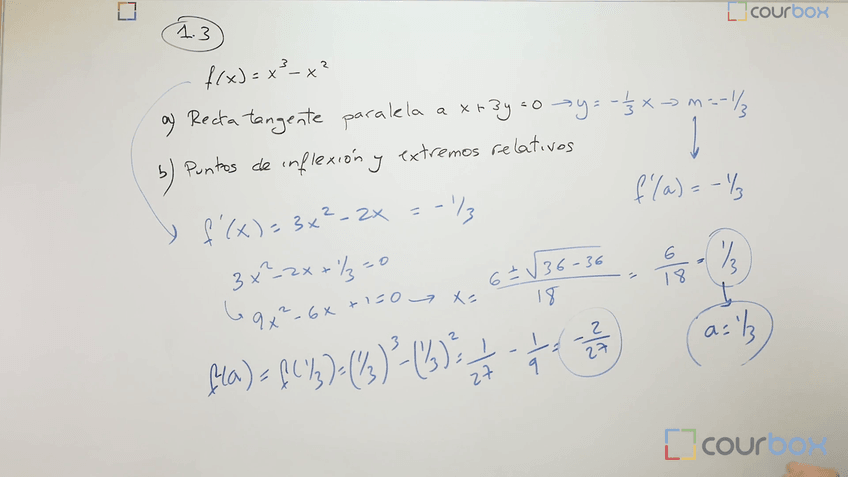 courbox
1.3
f(x) = x³ - x²
a) Recta tangente paralela a x + 3y = 0 → y = -1/3 x → m = -1/3
b) Puntos de inflexión y extremos relativos
f'(a) = -1/3
f'(x) = 3x² - 2x = -1/3
3x² - 2x + 1/3 = 0
9x² - 6x + 1 = 0 → x = 6 ± √36 - 36 / 18 = 6/18 = 1/3
a = 1/3
f(a) = f(1/3) = (1/3)³ - (1/3)² = 1/27 - 1/9 = -2/27
courbox